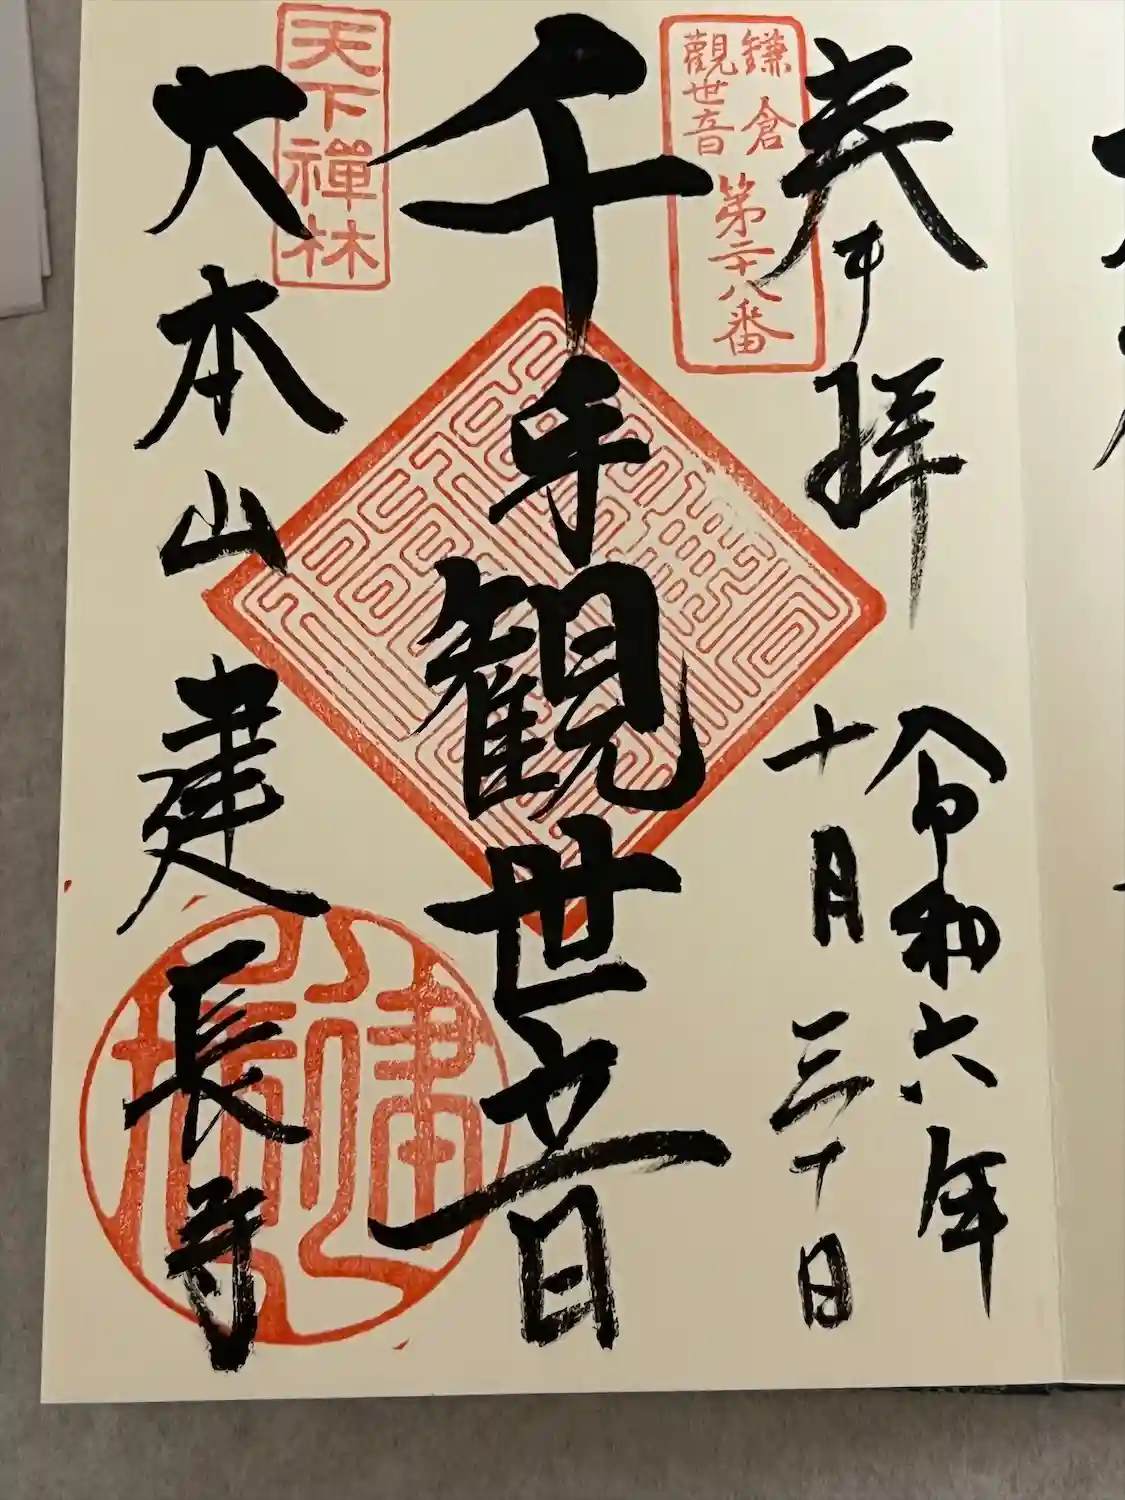 奉拝
令和六年
十月三十日
鎌倉
観世音
第二十八番
千手観世音
天下禅林
大本山建長寺